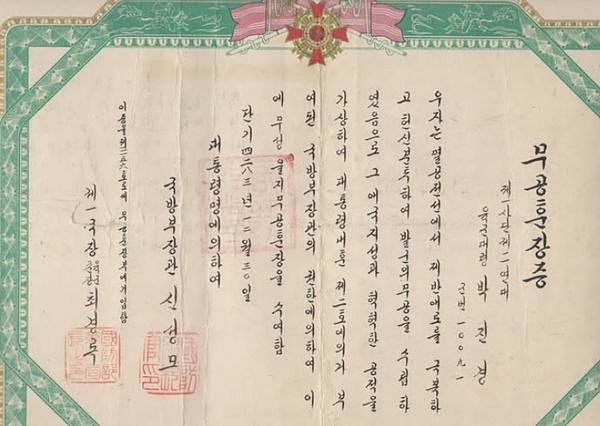 무공훈장증
제一사단제一二연대
육군대령 박 진 경
군번 一00九一
우자는 멸공전선에서 제반애로를 극복하
고 헌신분투하여 발군의무공을 수립하
였음으로 그 애국지성과 혁혁한 공적을
가상하여 대통령내훈 제二호에의거 부
여된 국방부장관의 권한에의하여 이
에 무성 을지무공훈장을 수여함
단기 四二八三년 一二월 三0일
대통령명에의하여
국방부장관 신 성 모
무공훈장부에기입함
제一국장 육군준장 최 경 록